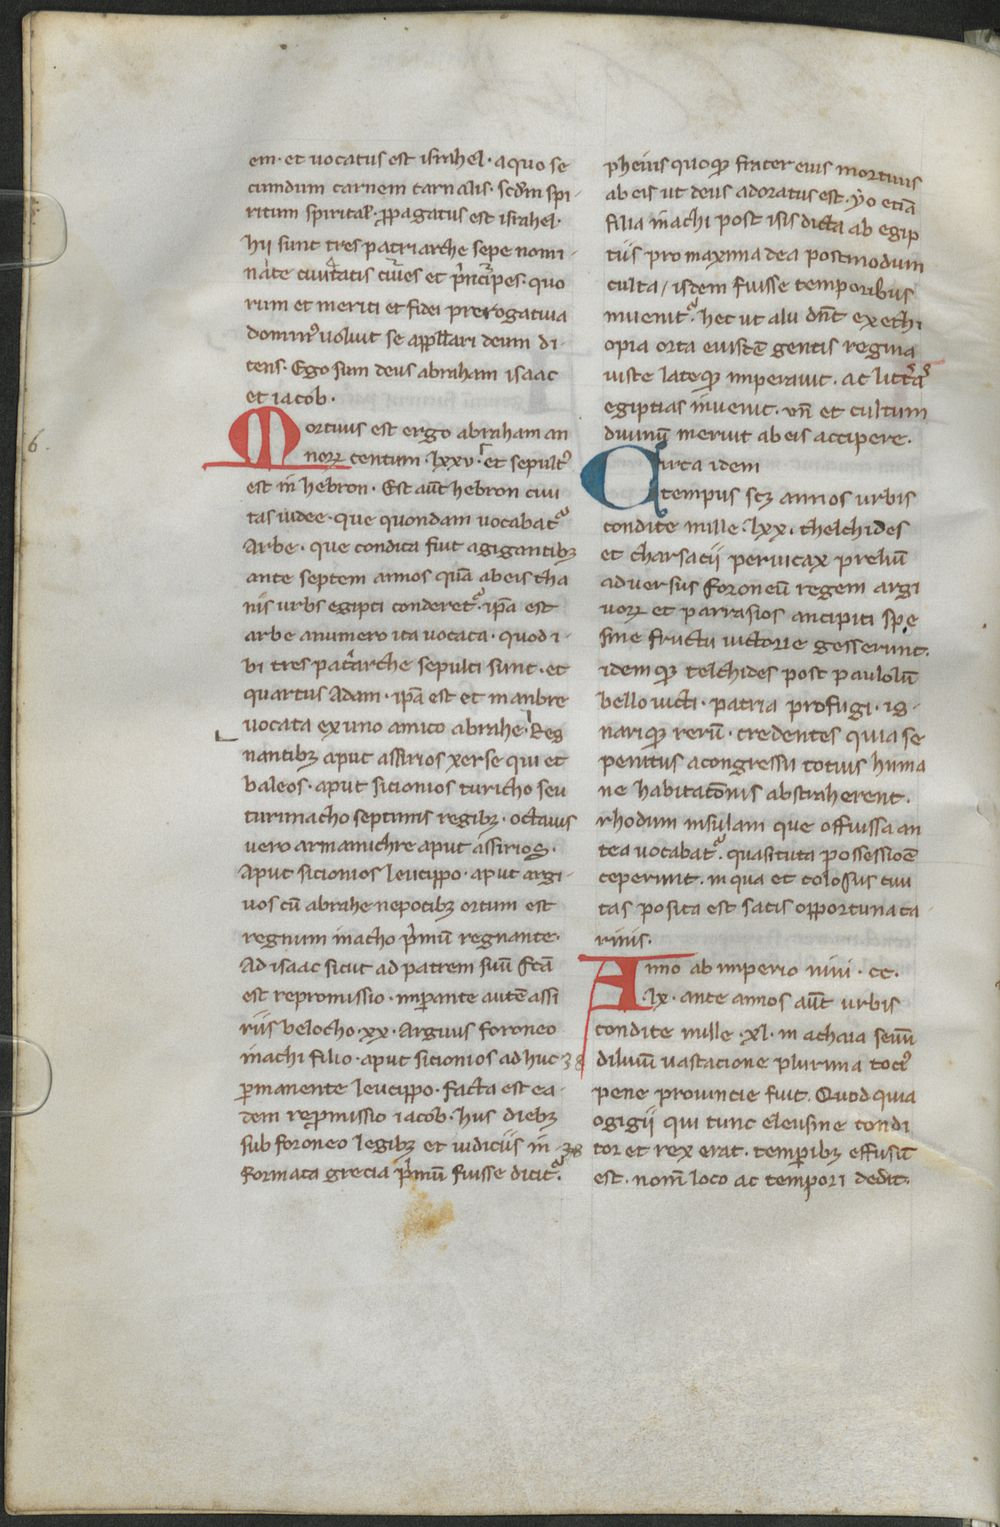 em · et uocatus est israhel · a quo se
cundum carnem carnalis · scdm spi
ritum spirital · ppagatus est israhel ·
hii sunt tres patriarche sepe nomi
nate ciuitatis ciues et principes · quo
rum et meriti et fidei prerogatiua
dominus uoluit se appllari deum di
cens · Ego sum deus abraham isaac
et iacob ·
Mortuus est ergo abraham an
norum centum · lxxv · et sepult
est in hebron · Est aut hebron ciui
tas iudee · que quondam uocabat
Arbe · que condita fuit a gigantib;
ante septem annos qua ab eis tha
nis urbs egipti conderet · ipa est
arbe a numero ita uocata · quod i
bi tres patarche sepulti sunt · et
quartus Adam · ipa est et manbre
uocata ex uno amico abrahe · Reg
nantib; aput assirios xerse qui et
baleos · aput sicionios turicho seu
turimacho septimis regib; · octauus
uero armamichre aput assirios ·
Aput sicionios leucippo · aput argi
uos cu abrahe nepotib; ortum est
regnum inacho pmu regnante ·
Ad isaac sicut ad patrem suu fca
est repromissio · impante aute assi
riis belocho · xx · Argiuus foroneo
inachi filio · aput sicionios ad huc
pmanente leucippo · facta est ea
dem repmissio iacob · hus dieb;
sub foroneo legib; et iudiciis in
formata grecia pmu fuisse dicit ·
pheuis quoq; frater eius mortuus
ab eis ut deus adoratus est · yo etia
filia inachi post isis dicta ab egip
tiis pro maxima dea postmodum
culta / isdem fuisse temporibus
inuenit · hec ut alii dnt ex ethi
opia orta euiste gentis regina
iuste lateq; imperauit · ac littas
egiptias inuenit · un et cultum
diuinu meruit ab eis accipere ·
Circa idem
tempus scz annos urbis
condite mille · lxx · thelchides
et charsacii peruicax preliu
aduersus foroneu regem argi
uorum et parrasios ancipiti spe
sine fructu uictorie gesserunt ·
idemq; telchides post paululu
bello uicti · patria profugi · ig
nariq; reru · credentes quia se
penitus a congressu totius huma
ne habitatonis abstraherent ·
rhodum insulam que offiussa an
tea uocabat · quasi tuta possessioe
ceperunt · in qua et colosus ciui
tas posita est satis opportuna ca
rinis ·
Anno ab imperio nini · cc ·
lx · ante annos aut urbis
condite mille · xl · in achaia seuu
diluuiu uastacione plurima toci
pene prouincie fuit · Quod quia
ogigii qui tunc eleusine condi
tor et rex erat · temporib; effusu
est · nom loco ac tempori dedit ·